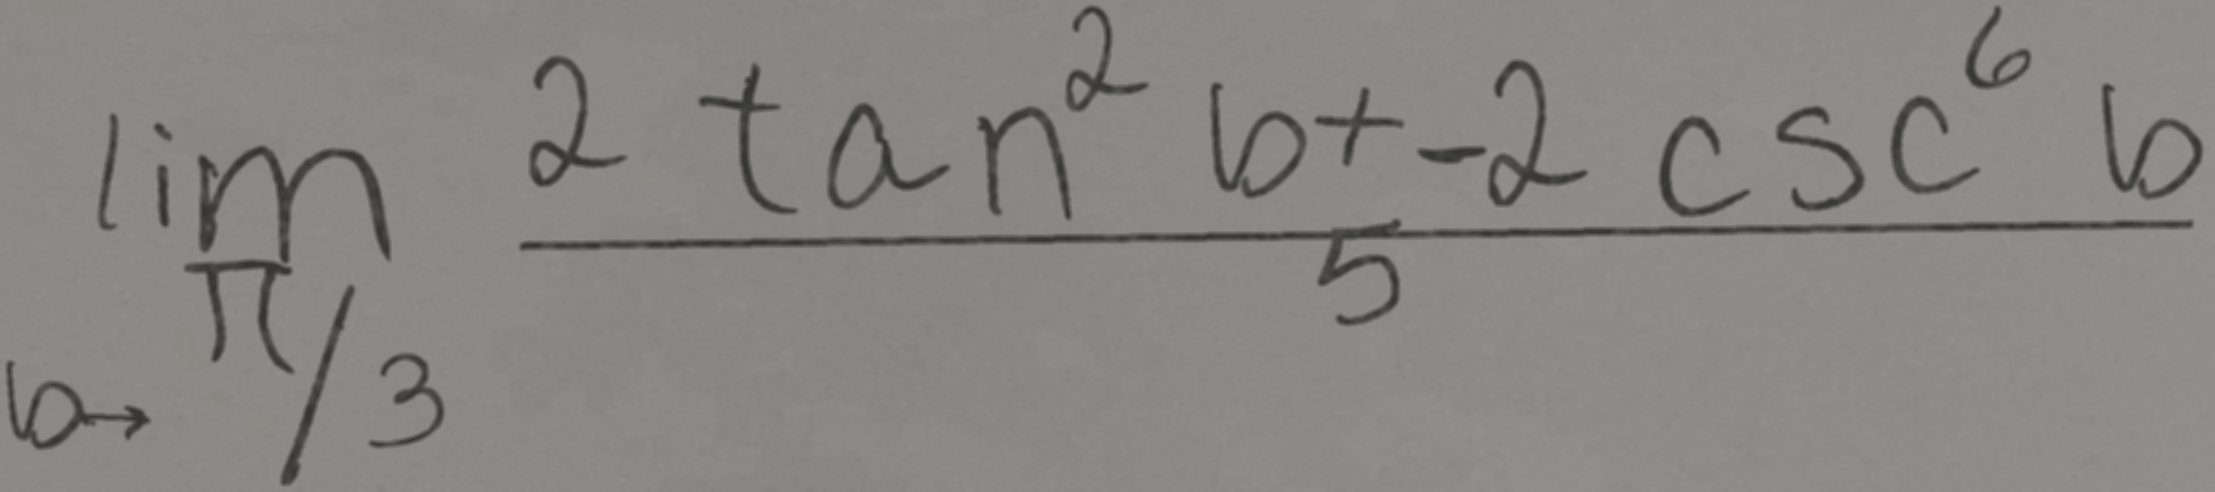 \lim_{b \to \pi/3} \frac{2 \tan^2 b + -2 \csc^6 b}{5}